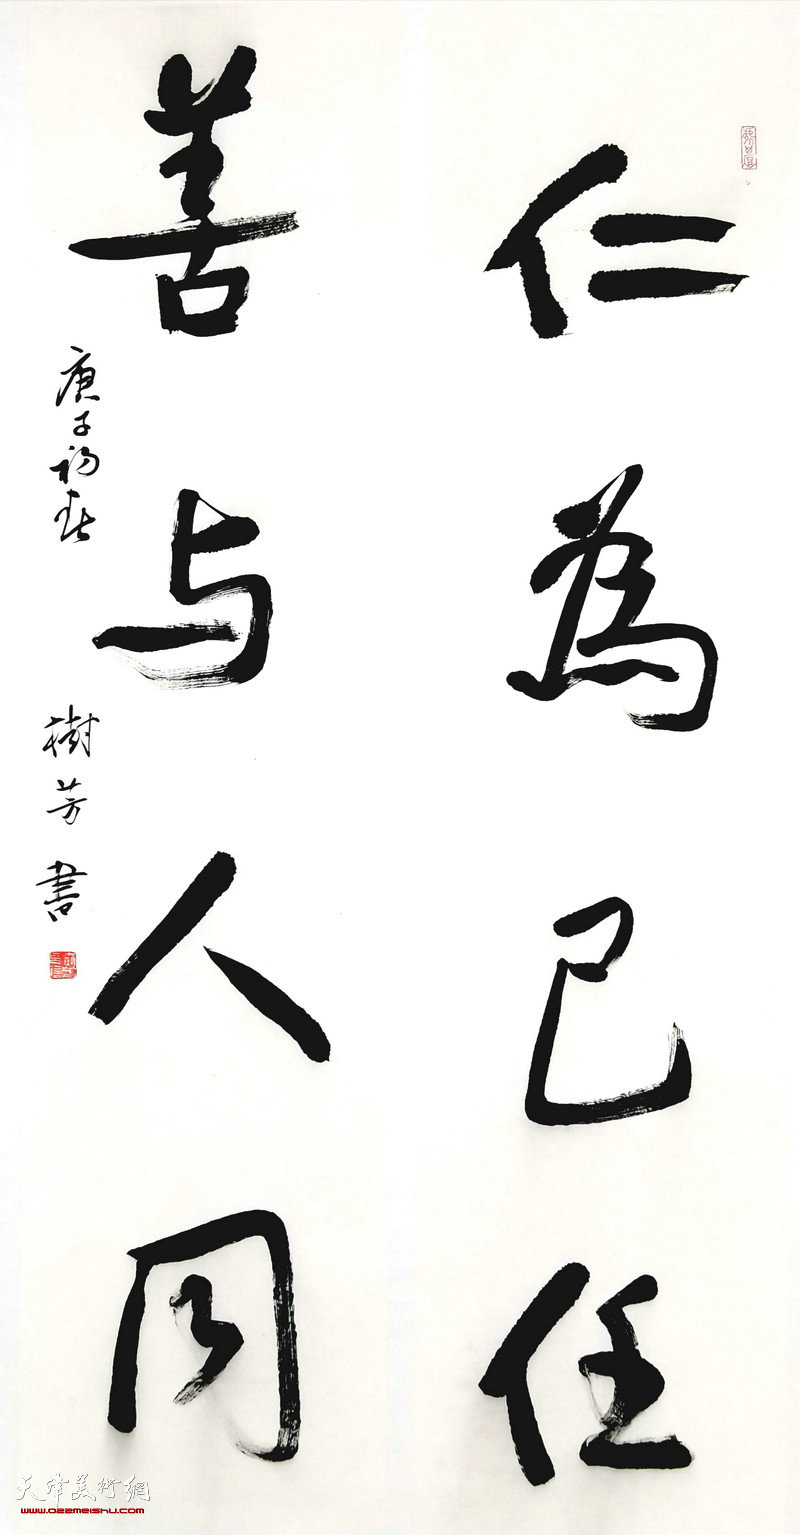 仁為己任
善与人同
庚子初春
樹芳書
天津美術網
www.022meishu.com